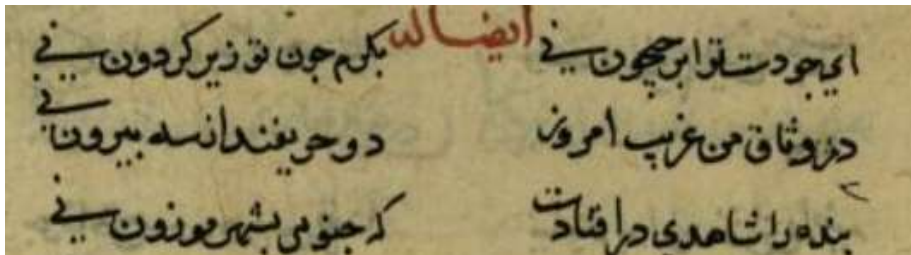 ایضا له
ای جو دست تو ابر جیحون نی بکرم جون تو زیر کردون نی
در وثاق من غریب امروز دو حریفند از سه بیرون نی
بنده را شاهدی در افتادت که جنو می بشهر موزون نی